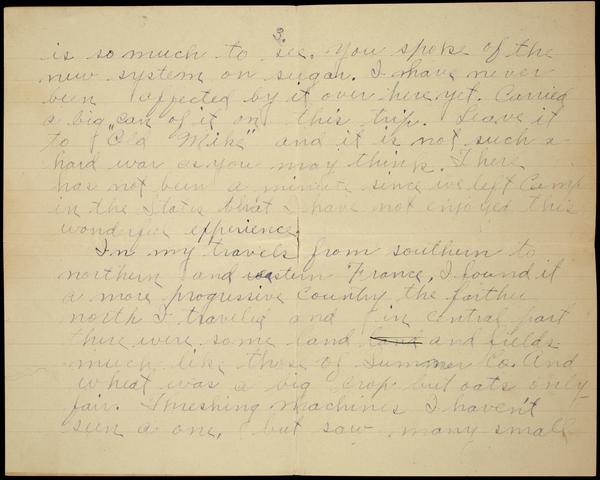 3.
is so much to see. You spoke of the
new system on sugar. I have never
been affected by it over here yet. Carried
a big can of it on this trip. Leave it
to "Old Mike" and it is not such a
hard war as you may think. There
has not been a minute since we left Camp
in the States that I have not enjoyed this
wonderful experience.
In my travels from southern to
northern and eastern France, I found it
a more progressive country the farther
north I traveled and in central part
there were some land land and fields
much like those of Sumner Co. And
wheat was a big crop but oats only
fair. Threshing machines I haven't
seen a one, but saw many small